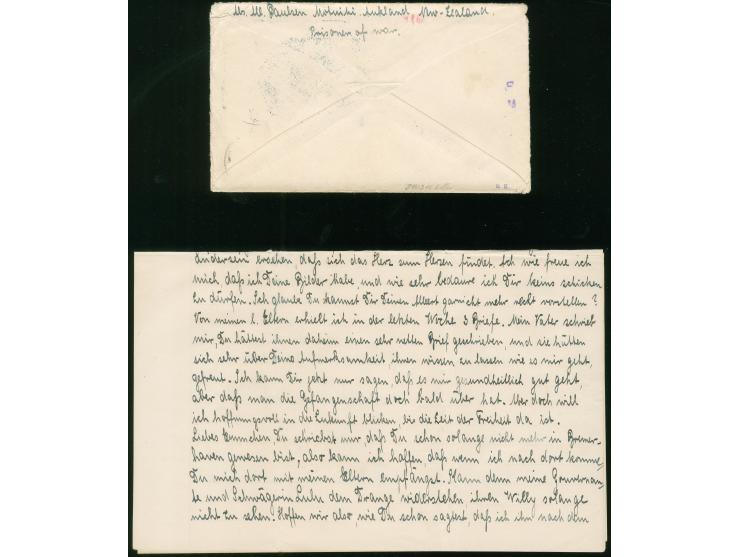 Mr. M. Paulsen Motuihi. Aukland. New-Zealand.
Prisoner of war.
Anderssein ersehen, daß sich das Herz zum Herzen findet. Ach wie freue ich
mich, daß ich Deine Bilder habe, und wie sehr bedaure ich Dir keins schicken
zu dürfen. Ich glaube Du kannst Dir Deinen Albert garnicht mehr recht vorstellen?
Von meinen l. Eltern erhielt ich in der letzten Woche 3 Briefe. Mein Vater schrieb
mir, Du hättest ihnen daheim einen sehr netten Brief geschrieben, und sie hätten
sich sehr über Deine Aufmerksamkeit ihnen wissen zu lassen wie es mir geht,
gefreut. Ich kann Dir jetzt nur sagen, daß es mir gesundheitlich gut geht,
aber daß man die Gefangenschaft doch bald über hat. Aber doch will
ich hoffnungsvoll in die Zukunft blicken, bis die Zeit der Freiheit da ist.
Liebes Emmchen, Du schriebst mir, daß Du schon solange nicht mehr in Bremer-
haven gewesen bist, also kann ich hoffen, daß wenn ich nach dort komme,
Du mich dort mit meinen Eltern empfängst. Kann denn meine Gouvernan-
te und Schwägerin Lulu dem Drange widerstehen ihren Willy solange
nicht zu sehen. Hoffen wir also, wie Du schon sagtest, daß ich ihn nach dem